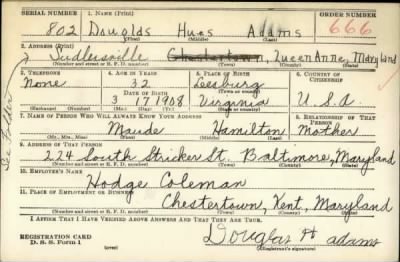 SERIAL NUMBER 1. NAME (Print) ORDER NUMBER
802 Douglds Hues Adams 666
(First) (Middle) (Last)
2. ADDRESS (Print)
Sudlersville Chestertown, Queen Anne, Maryland
(Number and street or R. F. D. number) (Town) (County) (State)
3. TELEPHONE 4. AGE IN YEARS 5. PLACE OF BIRTH 6. COUNTRY OF CITIZENSHIP
None 32 Leesburg
DATE OF BIRTH (Town or county)
3 17 1908 Virginia U.S.A
(Exchange) (Number) (Mo.) (Day) (Yr.) (State or country)
7. NAME OF PERSON WHO WILL ALWAYS KNOW YOUR ADDRESS 8. RELATIONSHIP OF THAT PERSON
Maude Hamilton Mother
(Mr., Mrs., Miss) (First) (Middle) (Last)
9. ADDRESS OF THAT PERSON
224 South Stricker St. Baltimore, Maryland
(Number and street or R. F. D. number) (Town) (County) (State)
10. EMPLOYER'S NAME
Hodge Coleman
11. PLACE OF EMPLOYMENT OR BUSINESS
Chestertown, Kent, Maryland
(Number and street or R. F. D. number) (Town) (County) (State)
I AFFIRM THAT I HAVE VERIFIED ABOVE ANSWERS AND THAT THEY ARE TRUE.
REGISTRATION CARD
D. S. S. Form 1 (over) Douglas H adams
(Registrant's signature)